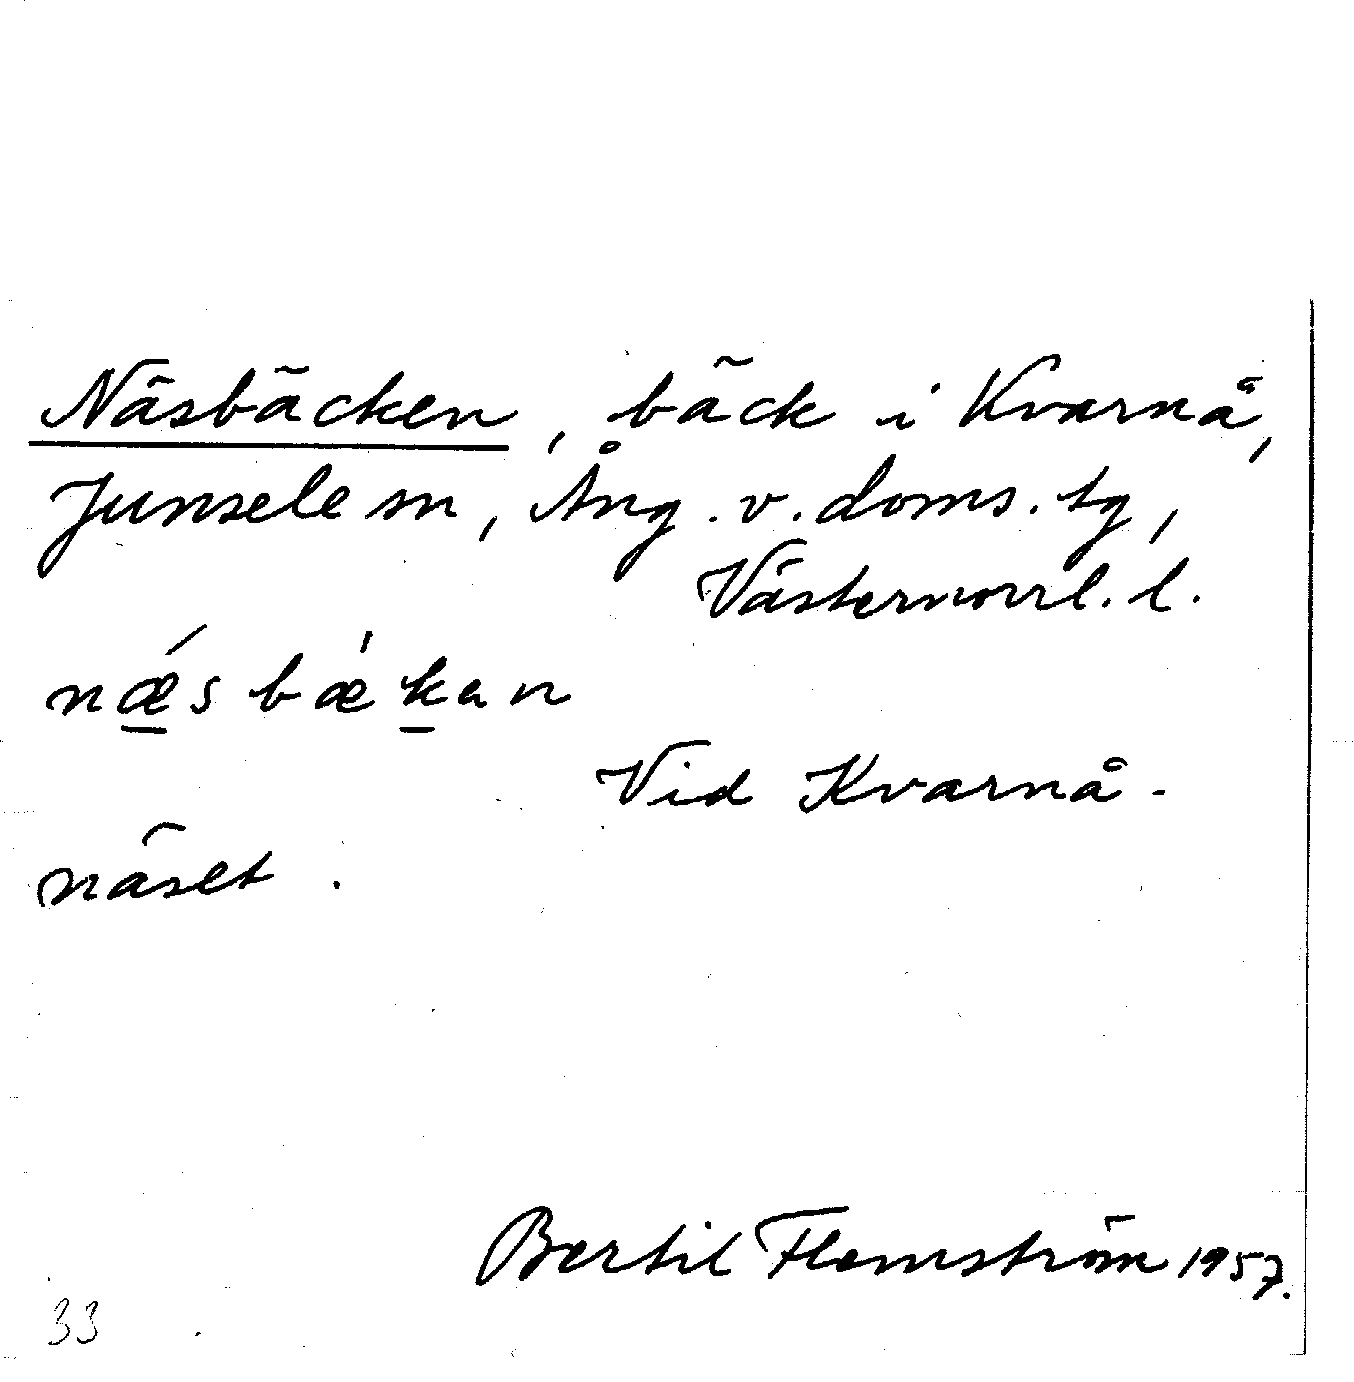 Näsbäcken, bäck i Kvarnå,
Junsele sn, Ång. v. doms. tg,
Västernorrl. l.
nǽsbǽkan
Vid Kvarnå-
näset.
Bertil Flemström 1957.
33